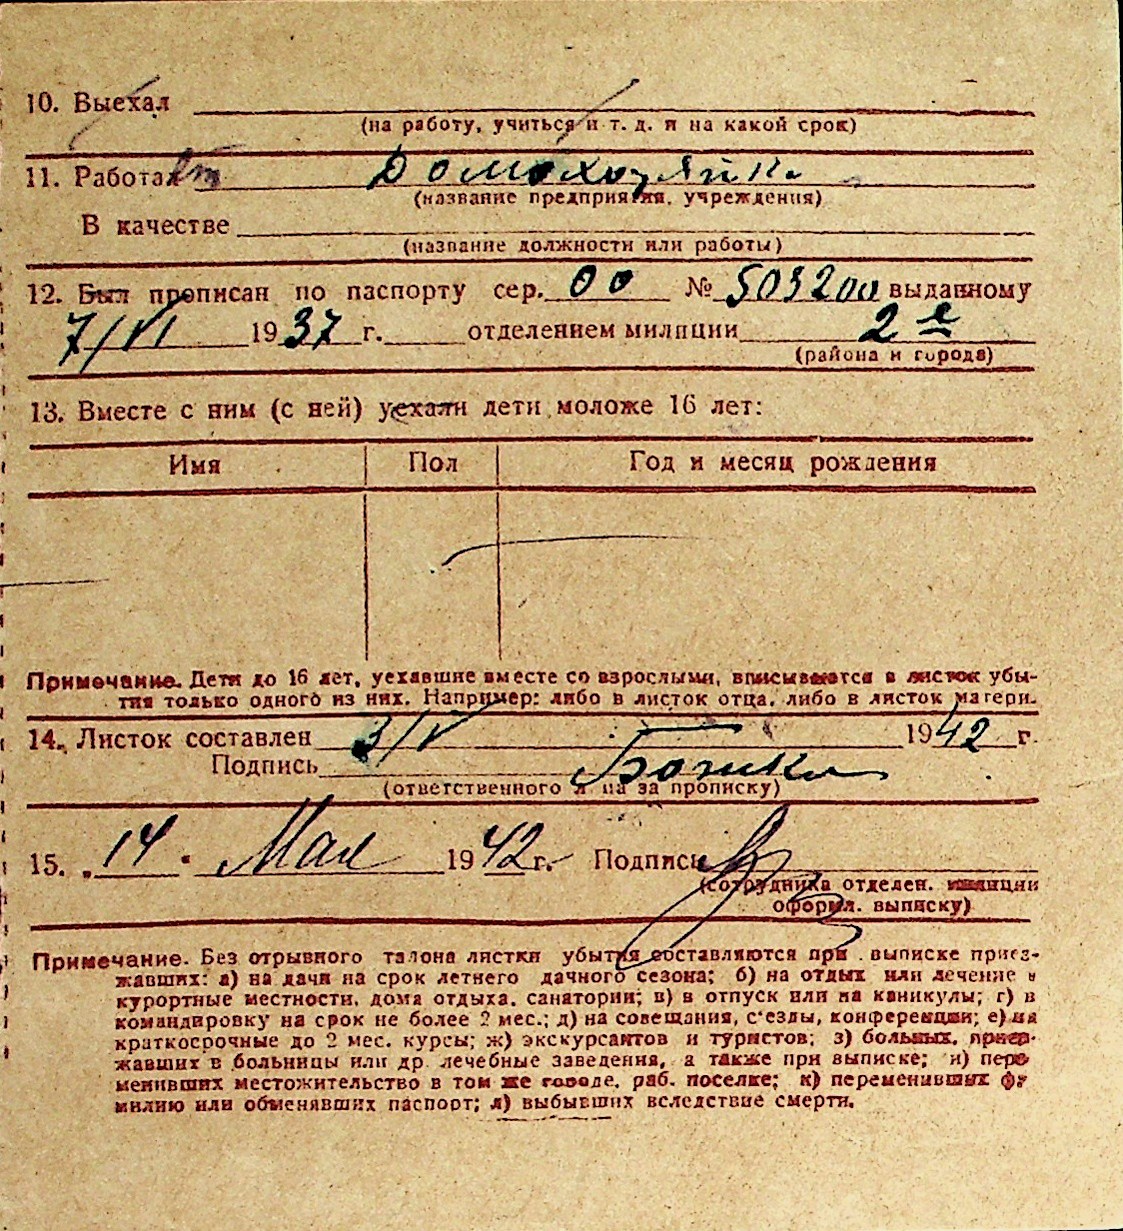 10. Выехал
(на работу, учиться и т. д. и на какой срок)
11. Работал Домохозяйка
(название предприятия, учреждения)
В качестве
(название должности или работы)
12. Был прописан по паспорту сер. 00 № 503200 выданному
7/VI 1937 г. отделением милиции 2 е
(района и города)
13. Вместе с ним (с ней) уехали дети моложе 16 лет:
Имя Пол Год и месяц рождения
Примечание. Дети до 16 лет, уехавшие вместе со взрослыми, вписываются в листок убы-
тия только одного из них. Например: либо в листок отца, либо в листок матери.
14. Листок составлен 3/V 1942 г.
Подпись
(ответственного л на за прописку)
15. „14" Мая 1942 г. Подпись
(сотрудника отделен. милиции
оформл. выписку)
Примечание. Без отрывного талона листки убытия составляются при выписке приез-
жавших: а) на дачи на срок летнего дачного сезона; б) на отдых или лечение в
курортные местности, дома отдыха, санатории; в) в отпуск или на каникулы; г) в
командировку на срок не более 2 мес.; д) на совещания, с'езды, конференции; е) на
краткосрочные до 2 мес. курсы; ж) экскурсантов и туристов; з) больных, приез-
жавших в больницы или др лечебные заведения, а также при выписке; и) пере-
менивших местожительство в том же городе, раб. поселке; к) переменивших фа-
милию или обменявших паспорт; л) выбывших вследствие смерти.